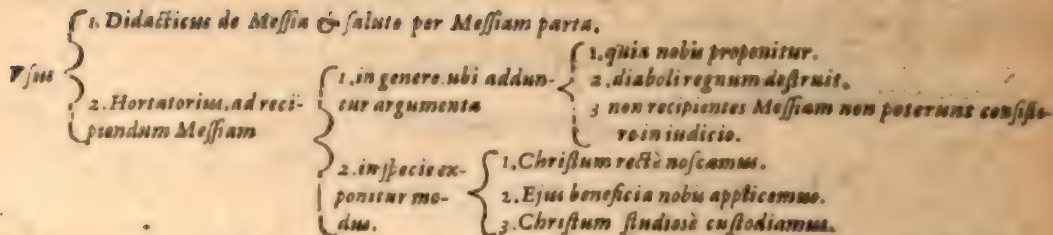 Vſus
1. Didacticus de Meſſia & ſalute per Meſſiam parta.
2. Hortatorius, ad reci-
piendum Meſſiam
1. in genere. ubi addun-
tur argumenta
1. quia nobis proponitur.
2. diaboli regnum deſtruit.
3 non recipientes Meſſiam non poterunt conſiſte-
re in iudicio.
2. in ſpecie ex-
ponitur mo-
dus.
1. Chriſtum rectè noſcamus.
2. Ejus beneficia nobis applicemus.
3. Chriſtum ſtudiosè cuſtodiamus.